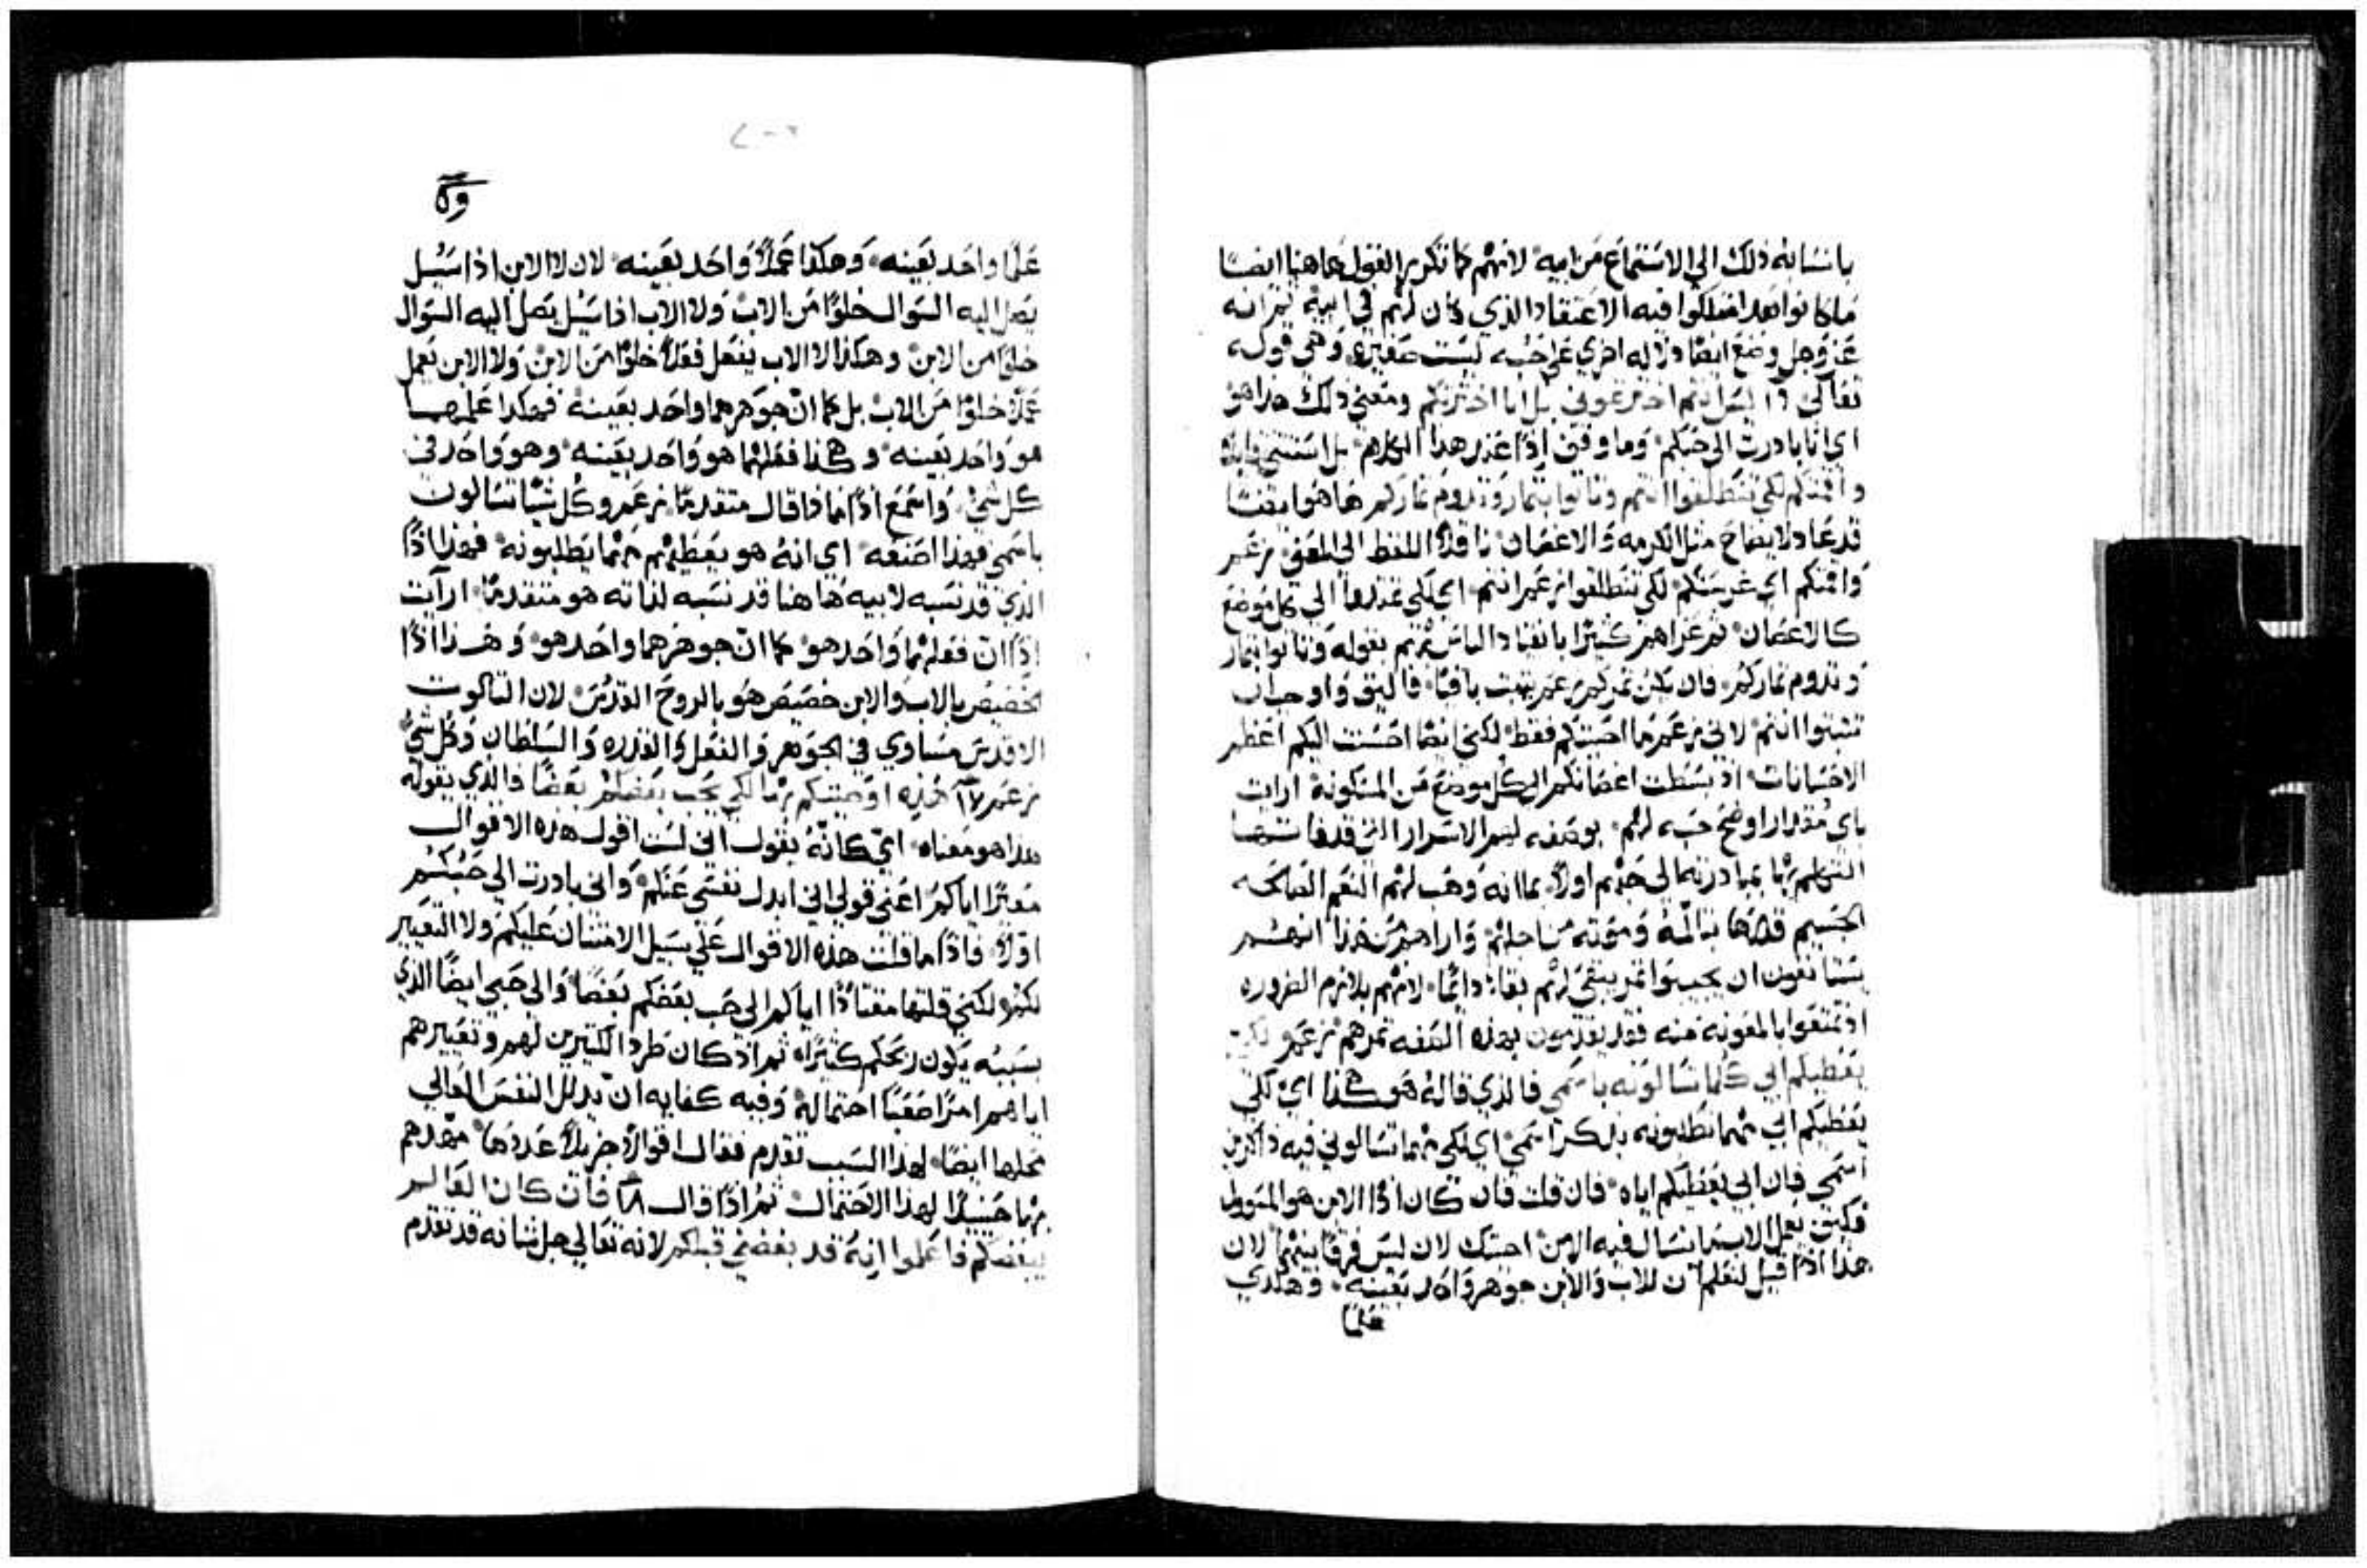 بانتسابه ذلك الي الاستماع من ابيه لانهم كما تكرر القول هاهنا ايضًا
ما كانوا بعد امتلكوا فيه الاعتقاد الذي كان لهم في ابيه ثم انه
عز وجل وضع ايضًا دلاله اخري علي حبه ليست صغيره وهي قوله
تعالي ليس انتم اخترتموني بل انا اخترتكم ومعني ذلك هذا هو
اي انا بادرت الي حبكم وما وقف اذًا عند هذا الكلام بل استثني قايلًا
واقمتكم لكي تنطلقوا انتم وتاتوا بثمار وتدوم ثماركم هاهو ايضًا
قد عاد لايضاح مثل الكرمه والاغصان ناقلًا اللفظ الي المعني نزعم
واقمتكم اي غرستكم لكي تنطلقوا نزعم انتم اي لكي تمتدوا الي كل موضع
كالاغصان ثم عزاهم كثيرًا بانقياد الناس لهم بقوله وتاتوا بثمار
وتدوم ثماركم فان يكن ثمركم نزعم يثبت باقيًا فاليق واوجب ان
تثبتوا انتم لاني نزعم ما احببتكم فقط لكني ايضًا احسنت اليكم اعظم
الاحسانات اذ بسطت اغصانكم الي كل موضع من المسكونه ارايت
باي مقدار اوضح حبه لهم بوصفه لهم الاسرار التي قد فاتها
بمبادرته الي حبهم اولًا بما انه وهب لهم النعم الصالحه
الجسيم قدرها بتالمه وموته من اجلهم واراهم من هذا انهم
ان يجيبوا ثمر يبقي لهم بقاء دايمًا لانهم بلازم الضروره
اذ تمتعوا بالمعونه منه فقد يقدمون بهذه الصفه ثمرهم نزعم لكي
يعطيكم ابي كلما تسالونه باسمي فالذي قاله هو هكذا اي لكي
يعطيكم ابي مهما تطلبونه بذكر اسمي اي لكي مهما تسالوني فيه ذاكرين
اسمي فان ابي يعطيكم اياه فان قلت فان كان اذًا الابن هو المسوول
فكيف يعمل الاب ما يسال فيه الابن اجبتك لان ليس فرقًا بينهما لان
هذا اذًا قيل لنعلم ان للاب والابن جوهر واحد بعينه وهكذي
علمًا
علمًا واحد بعينه وهكذا عملًا واحد بعينه لان لا الابن اذا سيل
يصل اليه السوال خلوًا من الاب ولا الاب اذا سيل يصل اليه السوال
خلوًا من الابن وهكذا لا الاب يفعل فعلًا خلوًا من الابن ولا الابن يعمل
عملًا خلوًا من الاب بل كما ان جوهرهما واحد بعينه فهكذا علمهما
هو واحد بعينه وهكذا فعلهما هو واحد بعينه وهو واحد في
كل شي واسمع اذًا ماذا قال متقدمًا نزعم وكل شيًا تسالون
باسمي فهذا اصنعه اي انه هو يعطيهم مهما يطلبونه فهذا اذًا
الذي قد نسبه لابيه هاهنا قد نسبه لذاته هو متقدمًا ارايت
اذًا ان فعلهما واحد هو كما ان جوهرهما واحد هو وهذا اذًا
كخصيص بالاب والابن خصيص هو بالروح القدس لان الثالوت
الاقدس متساوي في الجوهر والفعل والقدره والسلطان وكل شي
نزعم ١٧ هذه اوصيتكم بها لكي يحب بعضكم بعضًا فالذي يقوله
هذا هو معناه اي كانه يقول اني لست اقول هذه الاقوال
معيرًا اياكم اعني قولي اني ابدل نفسي عنكم واني بادرت الي حبكم
اولًا فاذًا ما قلت هذه الاقوال علي سبيل الامتنان عليكم ولا التعيير
لكم لكني قلتها مقتادًا اياكم الي حب بعضكم بعضًا والي حبي ايضًا الذي
بسببه يكون ربحكم كثيرًا ثم اذ كان طرد الكثيرين لهم وتعييرهم
اياهم امرًا صعبًا احتماله وفيه كفايه ان يدلل النفس العالي
محلها ايضًا لهذا السبب تقدم فقال اقوالًا جزيلًا عددها مهدهم
بها حينيدًا لهذا الاحتمال ثم اذًا قال ١٨ فان كان العالم
يبغضكم فاعلموا انه قد بغضني قبلكم لانه تعالي جل شانه قد تقدم